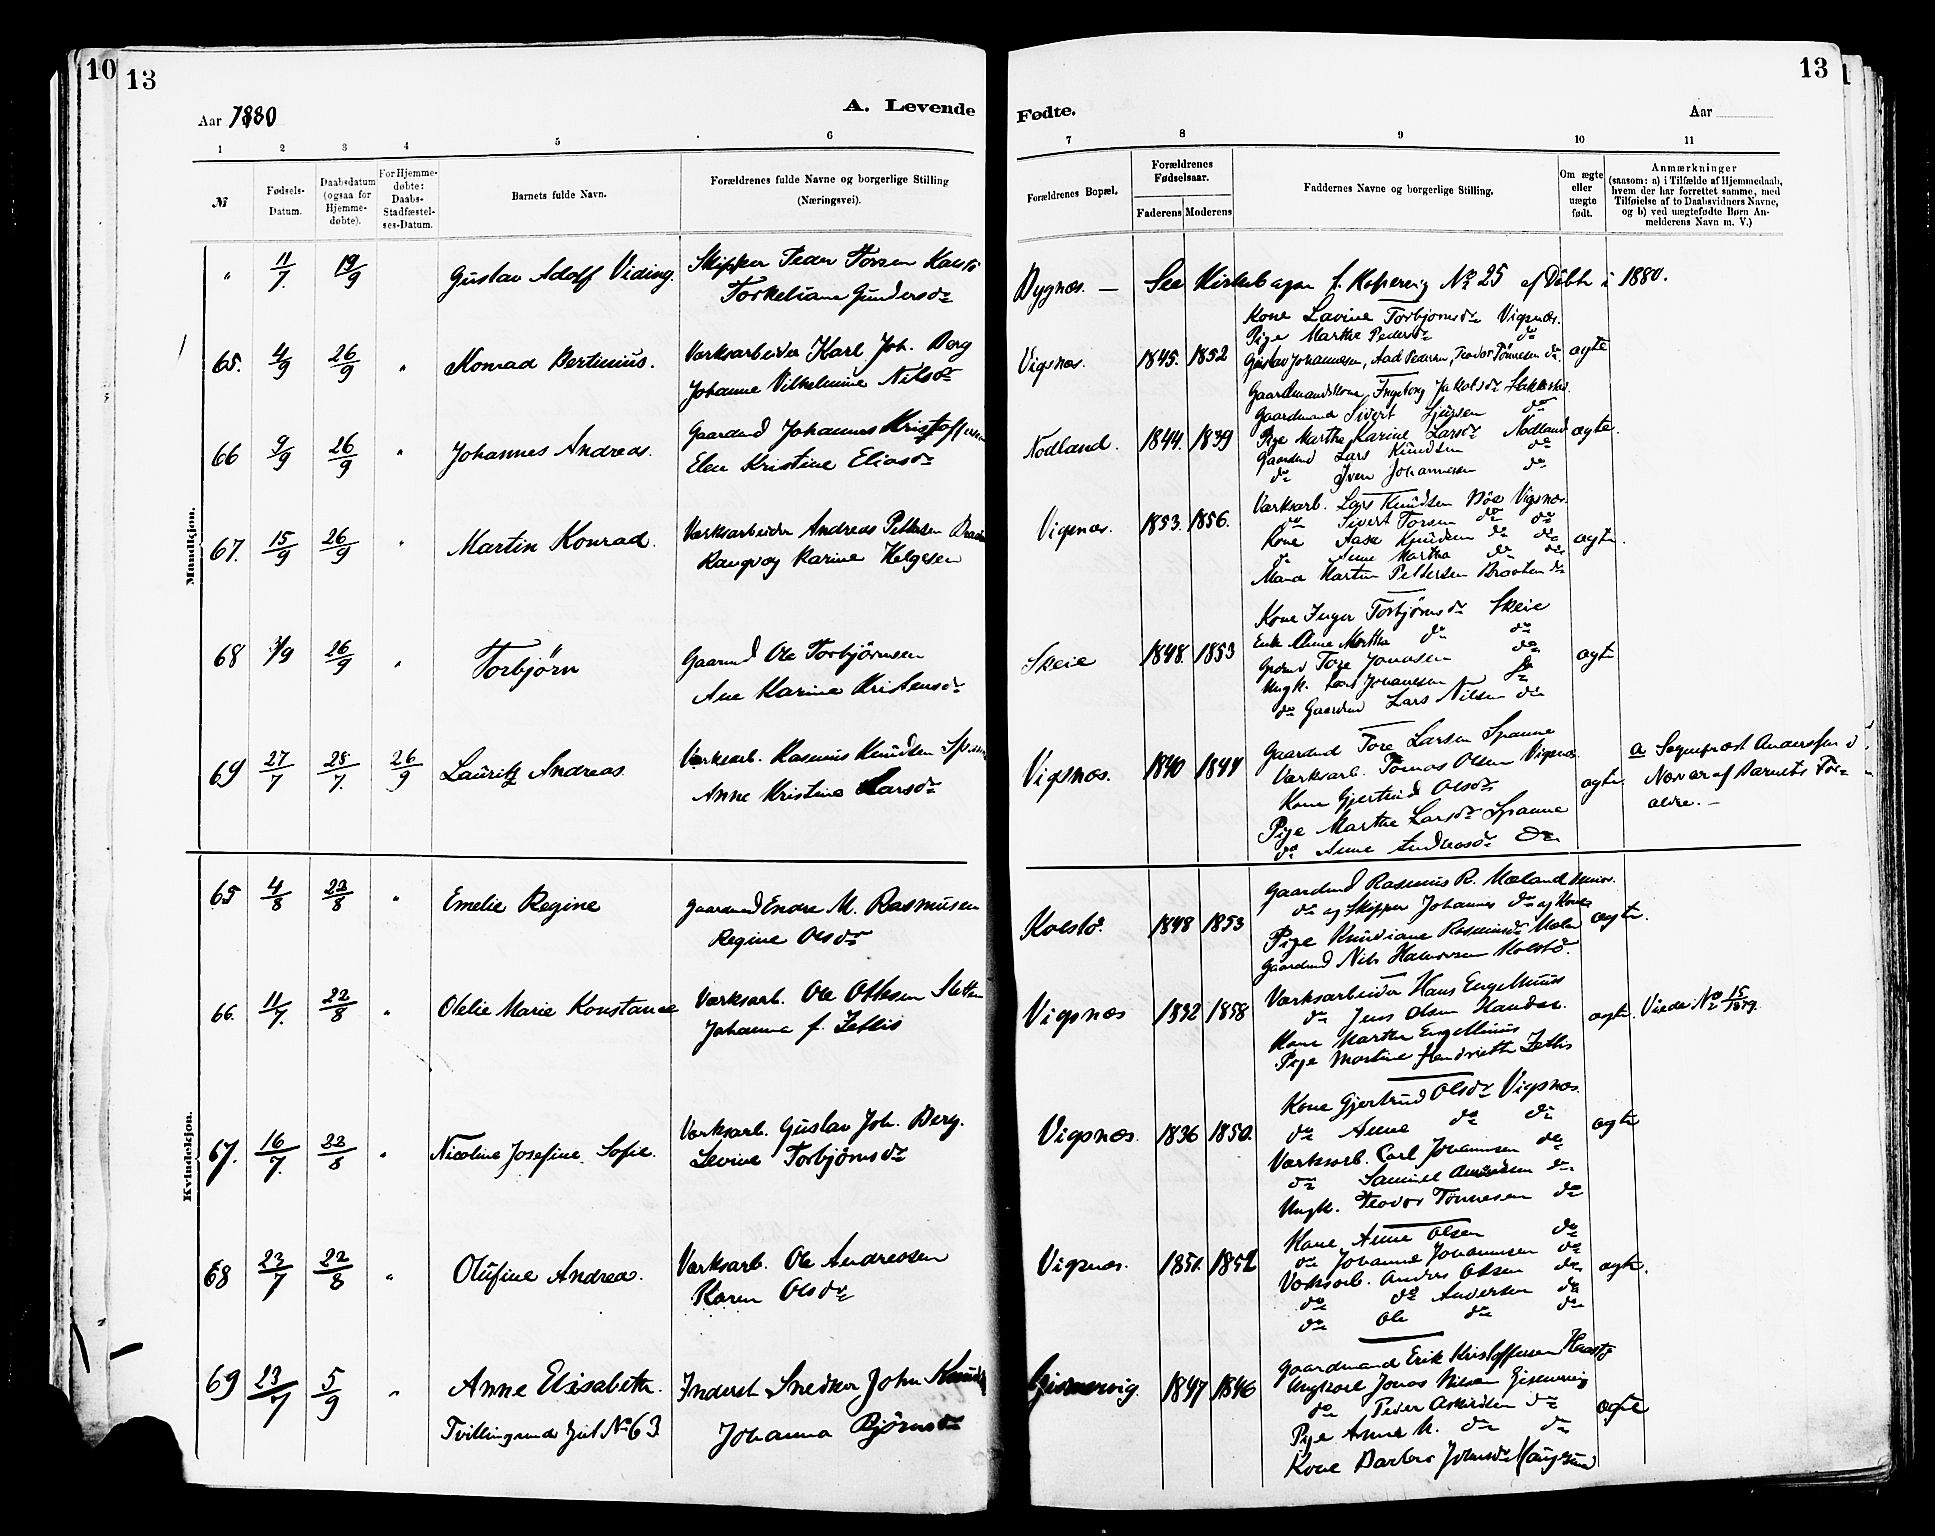 10
13
Aar 1880
A. Levende
1 2 3 4 5 6
№
Fødsels-Datum.
Daabsdatum (ogsaa for Hjemme-døbte).
For Hjemme-døbte: Daabs-Stadfæstel-ses-Datum.
Barnets fulde Navn.
Forældrenes fulde Navne og borgerlige Stilling (Næringsvei).
Mandkjøn.
" 11/7. 19/9 Gustav Adolf Viding. Skipper Peder Torsen
Torkeliane Gundersdr
65. 4/9 26/9 " Konrad Bertinius. Værksarbeider Karl Joh. Berg
Johanne Vilhelmine Nilsdr
66 9/9 26/9 " Johannes Andreas. Gaardmd Johannes Kristoffersen
Elen Kristine Eliasdr
67. 15/9 26/9 " Martin Konrad. Værksarbeider Andreas Pettersen
Rangvog Karine Helgesen
68 3/9 26/9 " Torbjørn Gaarmd Ole Torbjørnsen
Ane Karine Kristensdr
69 27/7 28/7. 26/9 Lauritz Andreas. Værksarb. Rasmus Knudsen
Anne Kristine Larsdr
Kvindekjøn.
65 4/8 22/8 " Emelie Regine gaardmd Endre M. Rasmusen
Regine Olsdr
66. 11/7. 22/8 " Olelie Marie Konstance Værksarb. Ole Ottesen
Johanna f. Zetlis
67. 16/7. 22/8 " Nicoline Josefine Sofie. Værksarb. Gustav Joh. Berg.
Levine Torbjørnsdr
68 23/7 22/8 " Olufine Andrea. Værksarb. Ole Andreasen
Karen Olsdr
69 23/7 5/9 " Anne Elisabeth. Inderst Snedker John
Johanna Bjørnsdr
Tvilling No 63
13
Fødte.
Aar
7 8 9 10 11
Forældrenes Bopæl.
Forældrenes Fødselsaar.
Faderens Moderens
Faddernes Navne og borgerlige Stilling.
Om ægte eller uægte født.
Anmærkninger
(saasom: a) i Tilfælde af Hjemmedaab,
hvem der har forrettet samme, med
Tilføielse af to Daabsvidners Navne,
og b) ved uægtefødte Børn An-
melderens Navn m. V.)
Dygnæs. — See Kirkebogen f. Kopervig No 25 af Døbte i 1880.
Kone Lavine Torbjørnsdr Vigsnæs.
Pige Marthe Pedersdr do
Vigsnæs. 1845. 1852 Gustav Johannesen, Aad Pedersen, Teodor Tønnesen do ægte
Gaardmandskone Ingeborg Jakobsdr
Gaardmand Sivert do
Nodland. 1844. 1839 Pige Marthe Karine Larsdr Nodland ægte.
Gaardmd Lars Knudsen do
do Iven Johannesen do
Værksarb. Lars Knudsen Vigsnæs.
do Sivert Torsen do do
Vigsnæs. 1853. 1856. Kone Aasa Knudsen do do ægte.
do Anne Martha do do
Martin Pettersen Braaten do
Kone Inger Torbjørnsdr Skeie
Enk. Anne Martha do do
Skeie 1848. 1853 Tore Jonasen do ægte
Ungk. Lars Johanesen do
do Gaardmd Lars Nilsen do
Gaardmd Tore Larsen Spanne
Vigsnæs. 1840 1844 Værksarb. Tomas Olsen Vigsnæs ægte
Kone Gjertrud Olsdr
Pige Marthe Larsdr Spanne
do Anne Andreasdr do
a Sogneprest Anderssen i
Nærvær af Barnets For-
ældre. —
Gaardmd Rasmus R. Mæland
do og Skipper Johannes do og Kone
Kolstø. 1848 1853 Pige Knudiane Rasmusdr ægte.
Gaardmd Nils Halvorsen Kolstø.
Værksarbeider Hans Engelhuus
Vigsnæs 1852 1858 do Jens Olsen ægte. Viede No 2 15/1879.
Kone Marthe Engelhuus
Pige Martine Hendriette Zetlis
Kone Gjertrud Olsdr Vigsnæs.
do Anne do do
Vigsnæs. 1836 1850. Værksarb. Carl Johannesen do ægte
do Samuel do
Ungk. Teodor Tønnesen do
Kone Anne Olsen do
do Johanne Johannesen do
Vigsnæs. 1851. 1852 Værksarb. Andreas Olsen do ægte.
do do Andersen do
do Ole do do
Gaardmand Erik Kristoffersen
Ungkarl Jonas Nilsen Gismervig
Gismervig. 1847 1846 do Peder do ægte
Pige Anne M. do do
Kone Barbro Johnsdr Haugesund